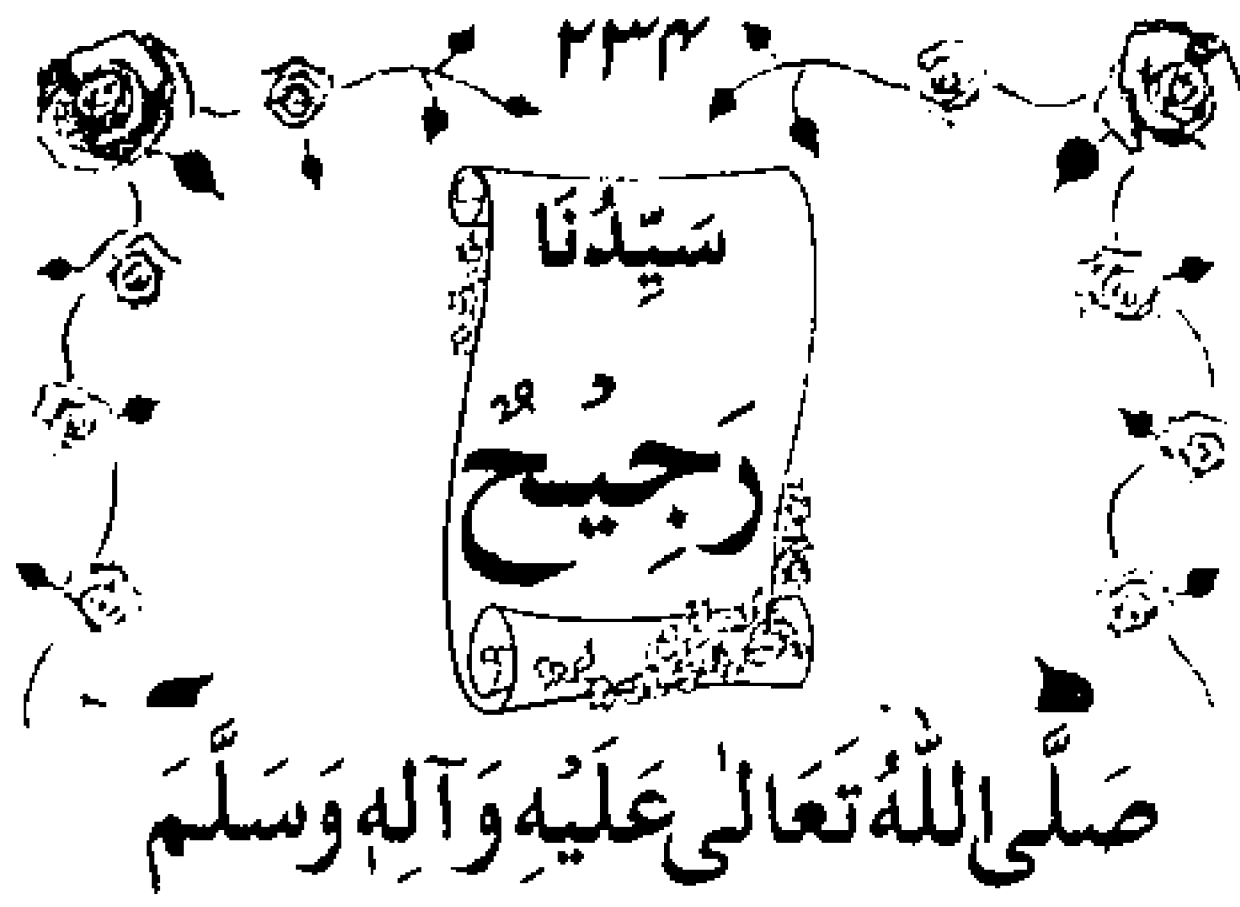 ۲۳۴
سَيِّدُنَا
رَجِيْحٌ
صَلَّى اللّٰهُ تَعَالٰى عَلَيْهِ وَآلِهٖ وَسَلَّمَ